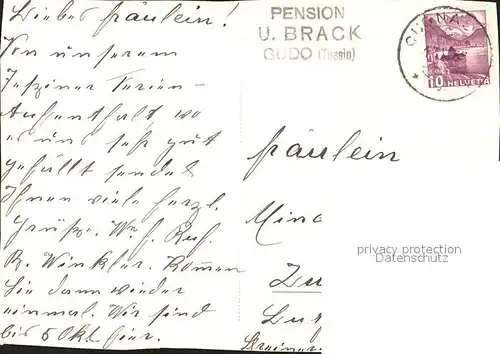 Liebes Fräulein!
Von unserem
Tessiner Ferien-
Aufenthalt wo
es uns sehr gut
gefällt sendet
Ihnen viele herzl.
Grüße.
R. Winkler. Kommen
Sie dann wieder
einmal. Wir sind
bis 5 Okt hier.
PENSION
U. BRACK
GUDO (Tessin)
10 HELVETIA
Fräulein
Mina
privacy protection
Datenschutz